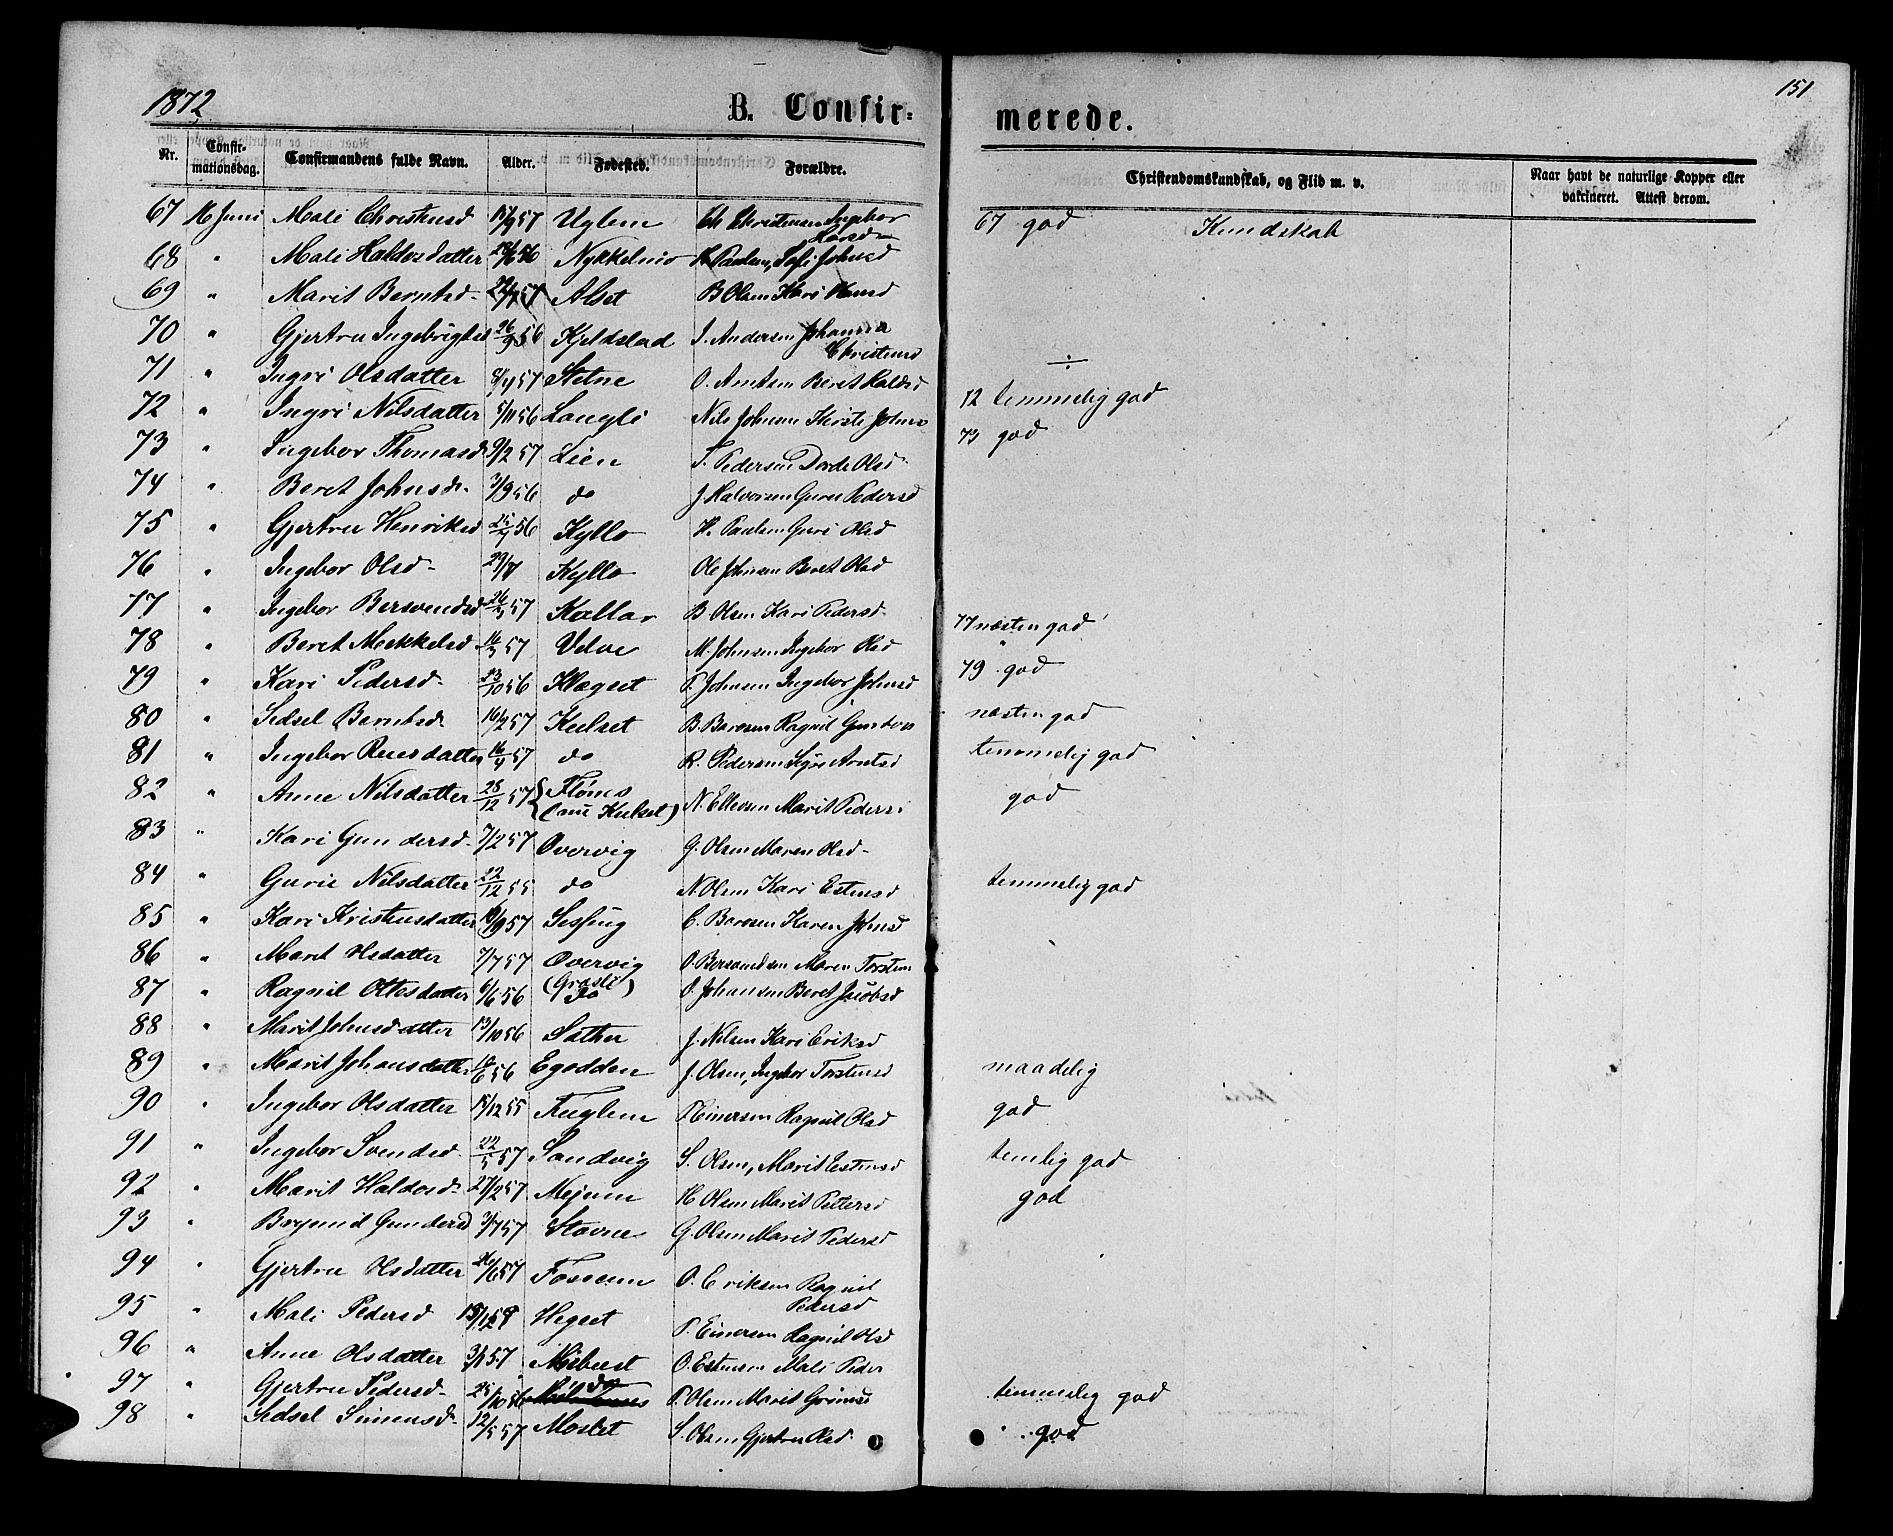 1872
B. Confirmerede.
151
Nr. Confirmationsdag. Confirmandens fulde Navn. Alder. Fødested. Forældre. Christendomskundskab, og Flid m. v. Naar havt de naturlige Kopper eller vakcineret. Attest derom.
67 16 Juni Mali Christensd 15/9 57 Uglem Ch Christensen Ingebor Larsd 67 god Kundskab
68 " Mali Haldosdatter Nykkelmo H Paulsen, Sofi Johnsd
69 " Marit Berntsd Alset B Olsen Kari Hansd
70 " Gjertru Ingebrigtsd 26/9 56 Kjeldstad I. Andersen Johanna Christensd
71 " Ingri Olsdatter Stetne O. Arntsen Beret Haldsd ÷
72 " Ingri Nilsdatter 5/11 56 Langli Nils Johnsen Kirsti Johnsd 72 temmelig god
73 " Ingebor Thomasd 9/2 57 Lien T. Pedersen Dorde Olsd 73 god
74 " Beret Johnsd 3/9 56 do J Halvorsen Guru Pedersd
75 " Gjertru Henriksd Kyllo H. Paulsen Guri Olsd
76 " Ingebor Olsd Kyllo Ole Johnsen Beret Olsd
77 " Ingebor Bersvendsd Kallar B. Olsen Kari Pedersd 77 næsten god
78 " Beret Mekkelsd Velve M. Johnsen Ingebor Olsd "
79 " Kari Pedersd 23/10 56 Klegset P. Johnsen Ingebor Johnsd 79 god
80 " Sidsel Berntsd Kulset B. Barosen Ragnil næsten god
81 " Ingebor Reiersdatter do R. Pedersen Arntsd temmelig god
82 " Anne Nilsdatter 28/12 57 Flönes (nu Kulset) N. Ellevsen Marit Pedersd god
83 " Kari Gundersd 7/2 57 Overvig G. Olsen Maren Olsd
84 " Gurie Nilsdatter 22/12 55 do N Olsen Kari Estensd temmelig god
85 " Kari Kristensdatter Sessing C. Barosen Karen Johnsd
86 " Marit Olsdatter 7/7 57 Overvig O. Bersvendsen Maren Torstens
87 " Ragnil Ottesdatter 6/6 56 (Grøsli) do O. Johansen Beret Jacobsd
88 " Marit Johnsdatter 13/10 56 Sather J. Nilsen Kari Eriksd
89 " Marit Johansdatter Egodden J. Olsen, Ingebor Torstensd maadelig
90 " Ingebor Olsdatter 15/12 55 Fuglem Einersen Ragnil Olsd god
91 " Ingebor Svendsd 22/5 57 Sandvig S. Olsen, Marit Estensd temlig god
92 " Marit Haldosd Mejem H Olsen Marit Pettersd god
93 " Gundersd 3/7 57 Stavne G. Olsen Marit Pedersd
94 " Gjertru Olsdatter Fossum O. Eriksen Ragnil Pedersd
95 " Mali Pedersd Hegset P. Einersen Ragnil Olsd
96 " Anne Olsdatter Mebust O. Estensen Mali Peder
97 " Gjertru Pedersd 25/10 56 do P. Olsen Marit temmelig god
98 " Sidsel Simensd 12/5 57 Moslet S. Olsen Gjertru Olsd god